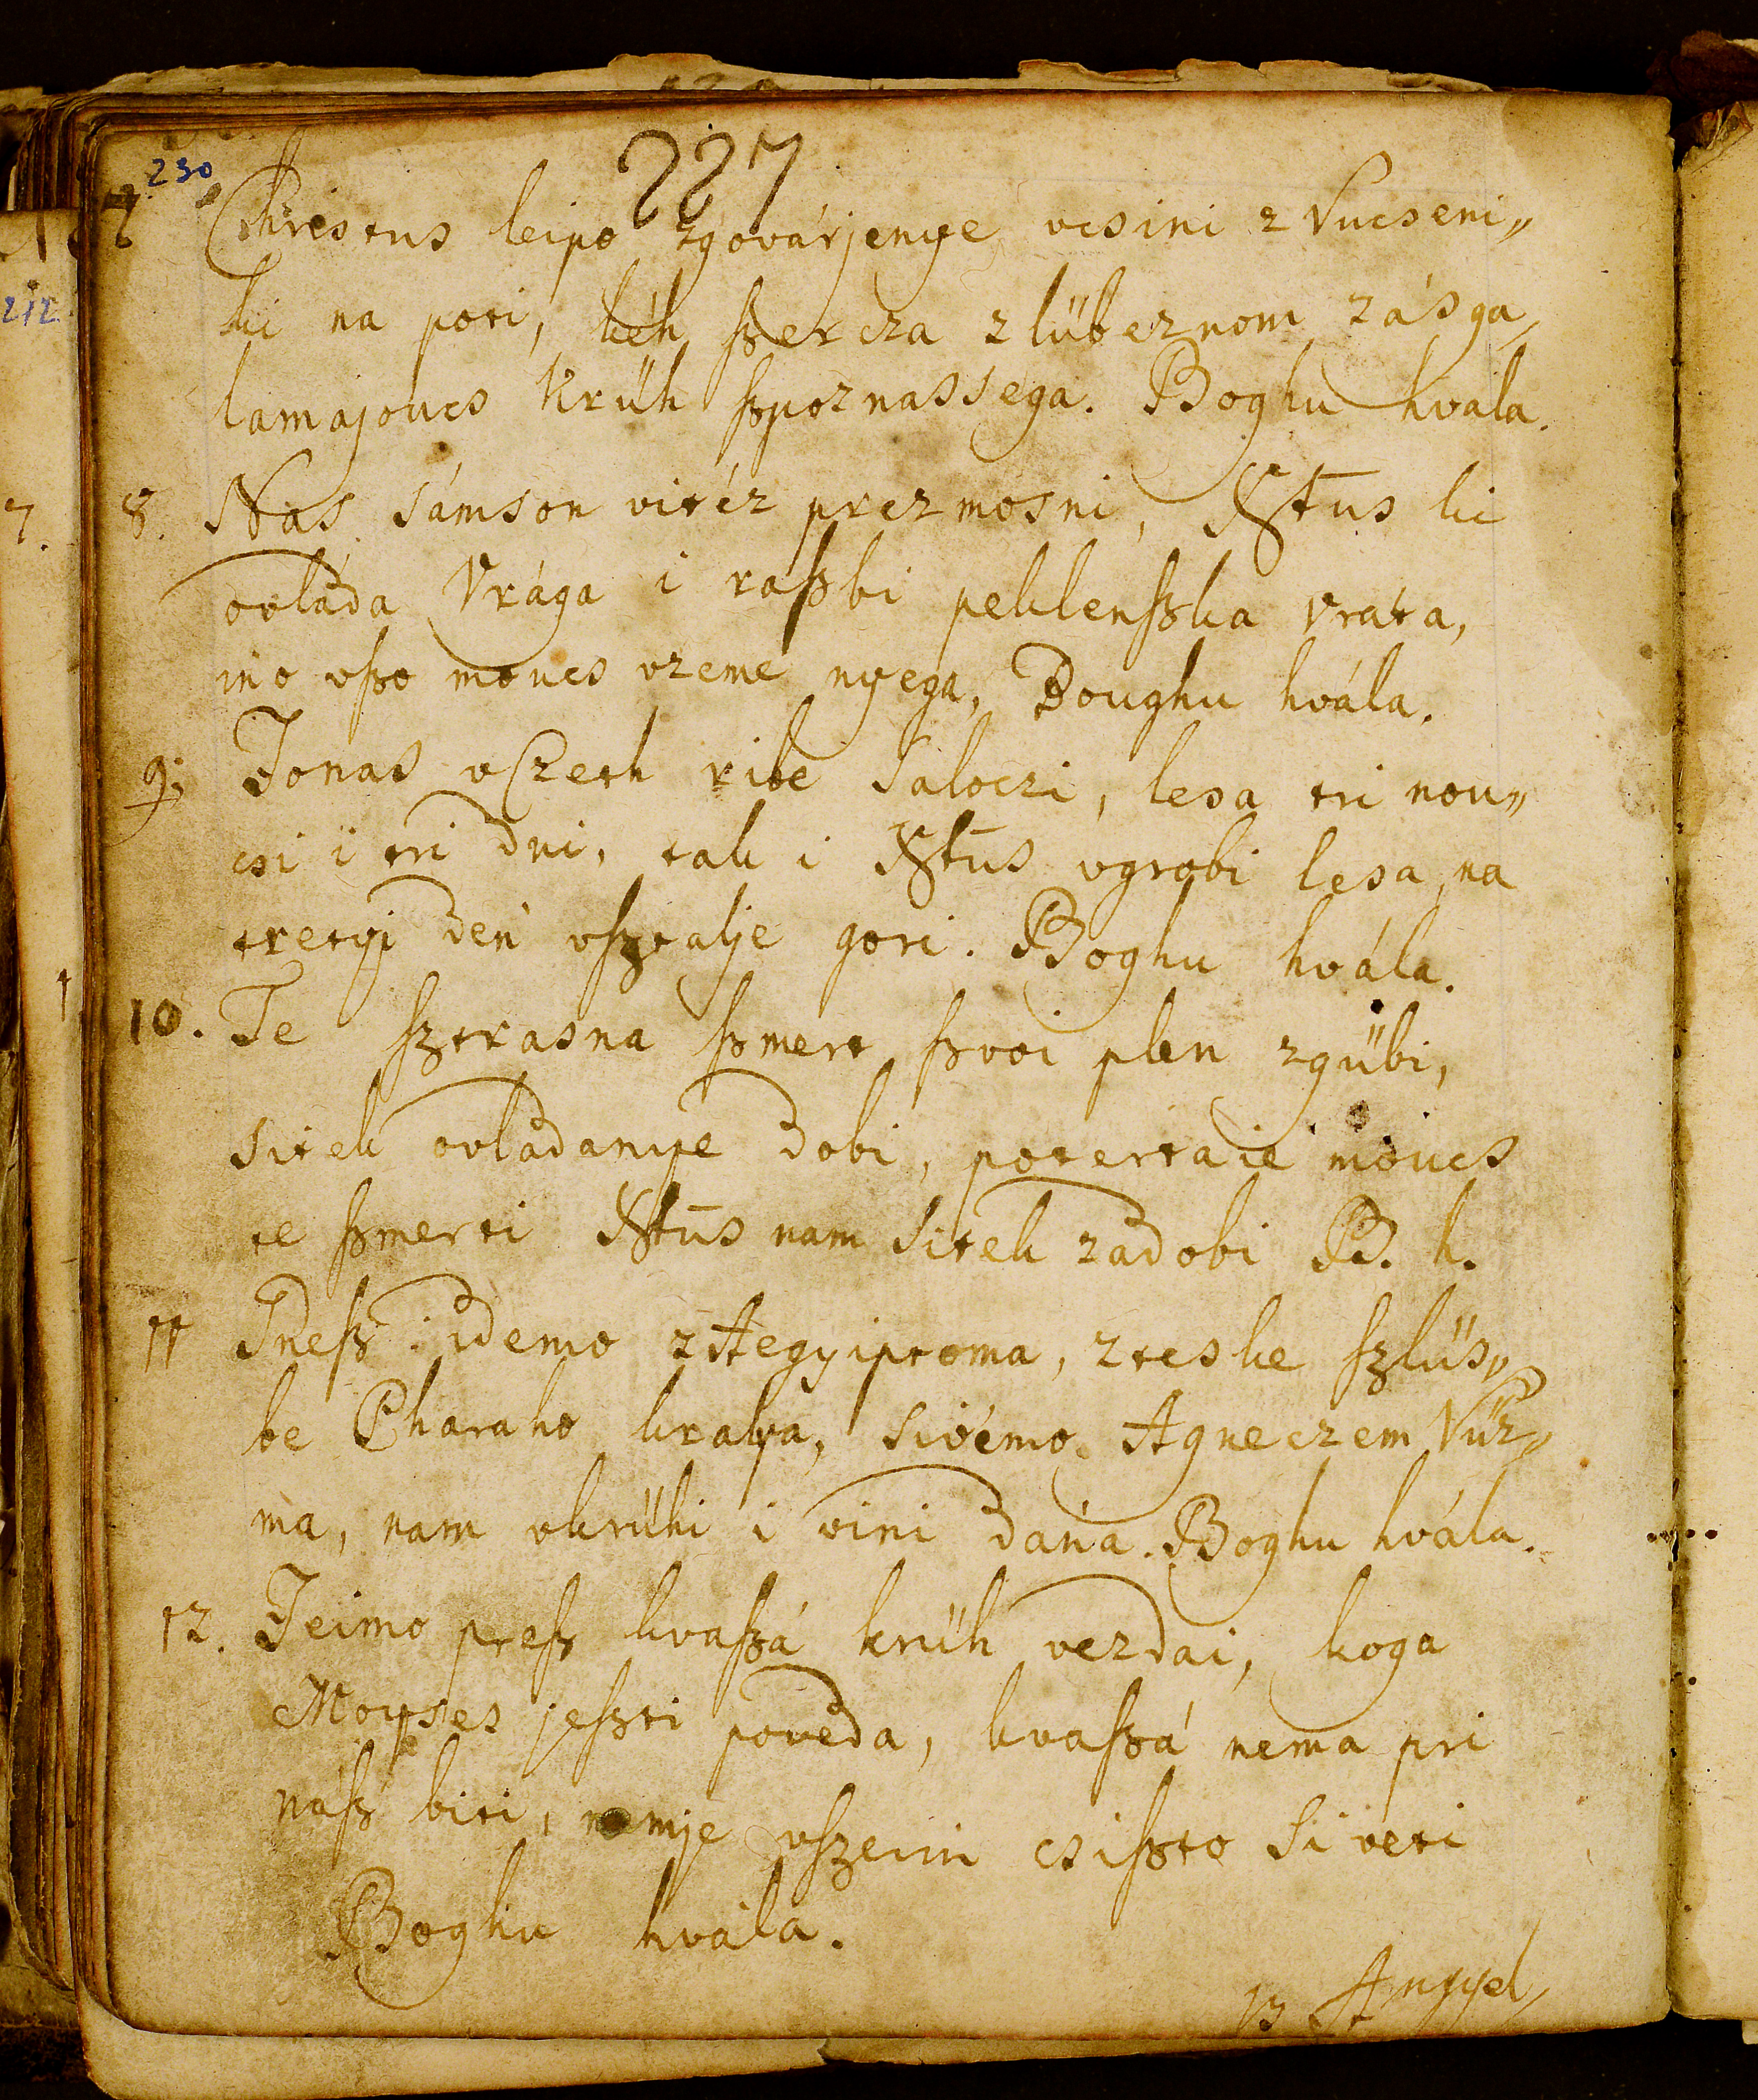 230
227
7 Christus leipo zgovárjenye vcsini z Vucseni„
ki na poti, kéh ſzercza z lübeznom zásga,
lamajoucs Krüh ſzpoznassega. Boghu hvala.
8. Nas Sámson vitéz prezmosni, Xtus ki
ovláda Vrága i raſzbi peklenſzka vrata,
ino vſzo moucs vzeme nyega, Boughu hvála.
9. Jonas v Czeth ribe Saloczi, lesa tri nou„
csi i tri dni, tak i Xtus vgrobi lesa, na
tretyi den vſztalje gori. Boghu hvála.
10. Te ſztrasna ſzmert ſzvoi plen zgübi,
Sitek ovládanye dobi, potertaie moucs
te ſzmerti Xtus nam Sitek zadobi B. h.
11 Dneſz idemo z Aegyiptoma, z teske ſzlüs„
be Pharaho kralya, Sivémo Agneczem Vüz„
ma, nam vkrühi i vini dána. Boghu hvála.
12. Jeimo preſz kvaſzá krüh vezdai, koga
Moyses jeſzti poveda, kvaſzá nema pri
náſz biti, vſzeim csiſzto Siveti
Boghu hvála.
13 Angyel,
212
7.